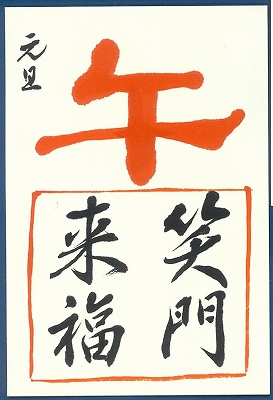 午
元旦
笑門
来福